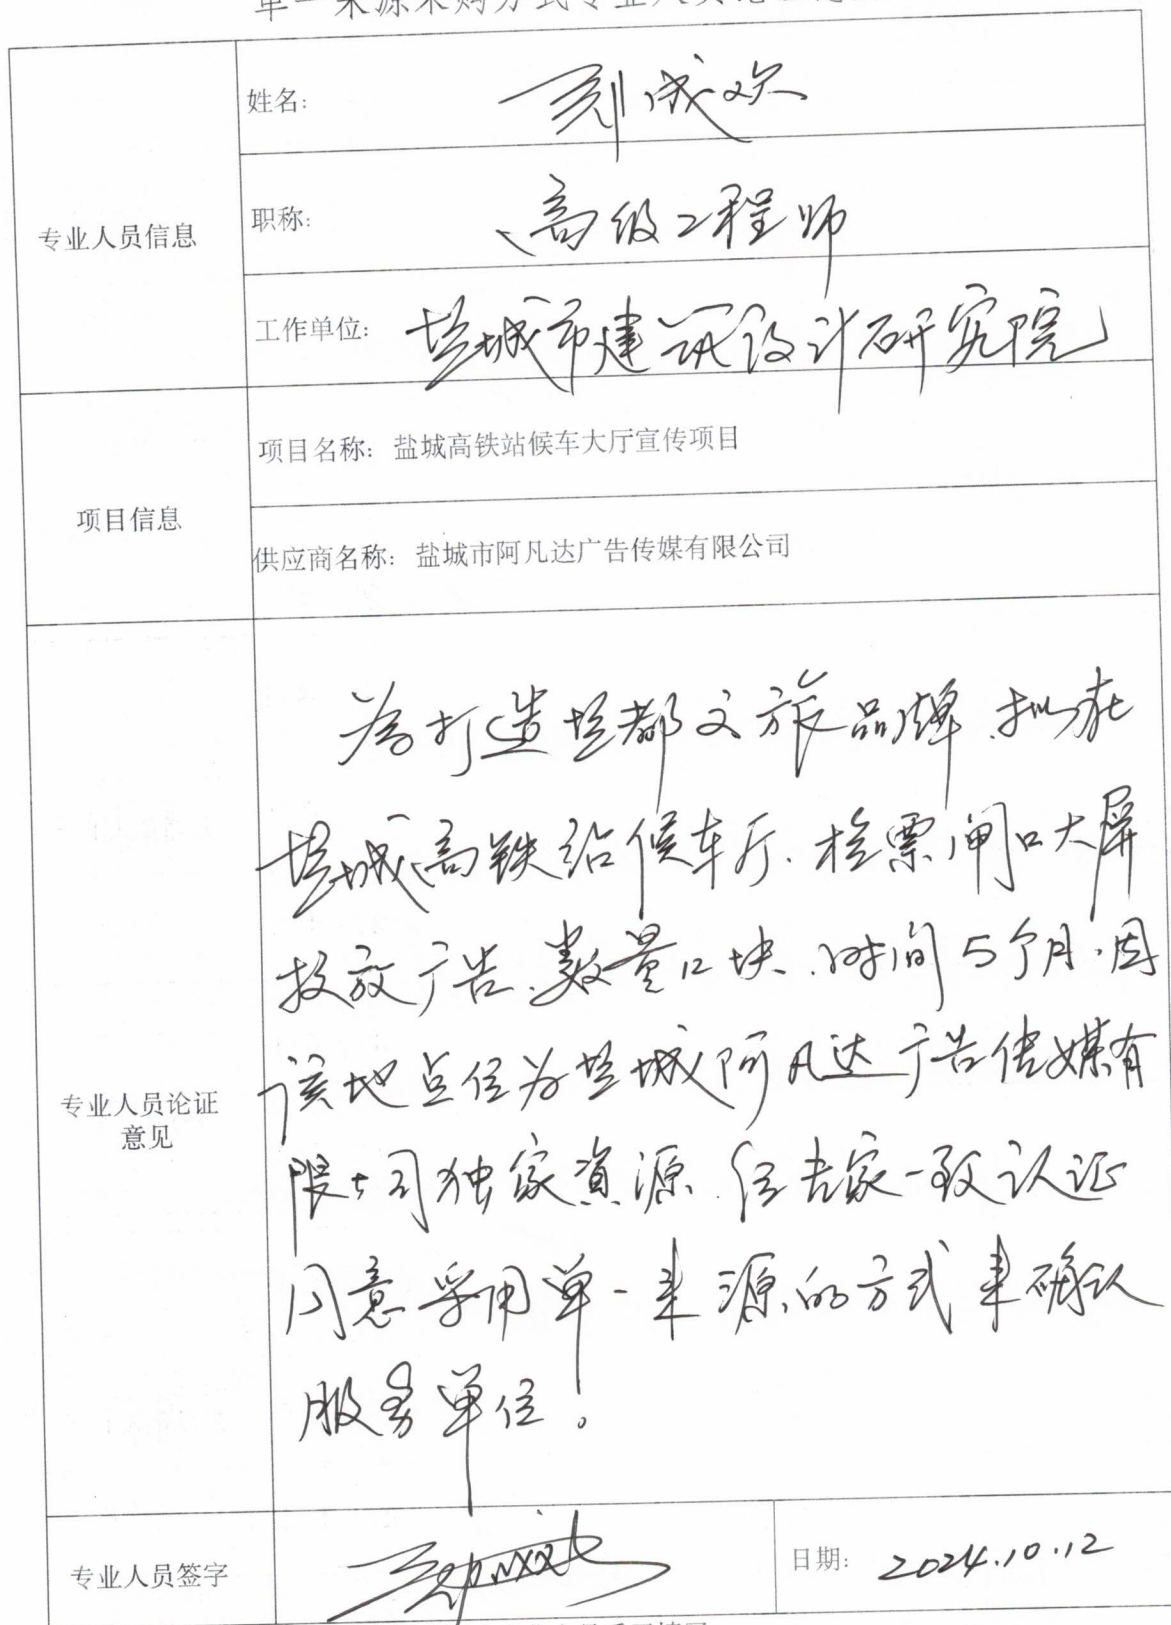 单一来源采购方式专业人员论证
专业人员信息
姓名: 刘成欢
职称: 高级工程师
工作单位: 盐城市建筑设计研究院
项目信息
项目名称: 盐城高铁站候车大厅宣传项目
供应商名称: 盐城市阿凡达广告传媒有限公司
专业人员论证
意见
为打造盐都文旅品牌,拟在
盐城高铁站候车厅、检票闸口大屏
投放广告,数量12块,时间5个月,因
该地点位为盐城阿凡达广告传媒有
限公司独家資源,经专家一致认证
同意采用单一来源的方式来确认
服务单位。
专业人员签字
日期: 2024.10.12